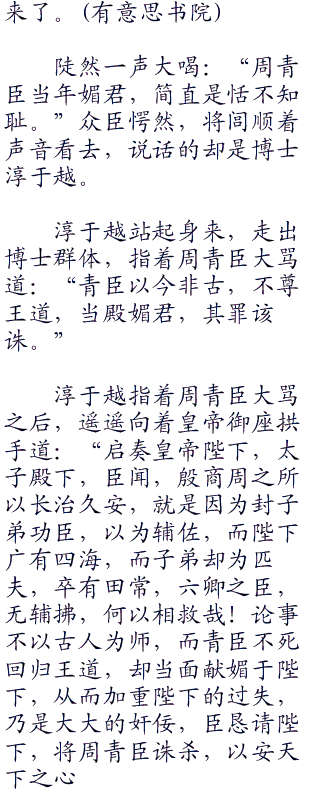 来了。(有意思书院)
陡然一声大喝：“周青
臣当年媚君，简直是恬不知
耻。”众臣愕然，将闾顺着
声音看去，说话的却是博士
淳于越。
淳于越站起身来，走出
博士群体，指着周青臣大骂
道：“青臣以今非古，不尊
王道，当殿媚君，其罪该
诛。”
淳于越指着周青臣大骂
之后，遥遥向着皇帝御座拱
手道：“启奏皇帝陛下，太
子殿下，臣闻，殷商周之所
以长治久安，就是因为封子
弟功臣，以为辅佐，而陛下
广有四海，而子弟却为匹
夫，卒有田常，六卿之臣，
无辅拂，何以相救哉！论事
不以古人为师，而青臣不死
回归王道，却当面献媚于陛
下，从而加重陛下的过失，
乃是大大的奸佞，臣恳请陛
下，将周青臣诛杀，以安天
下之心